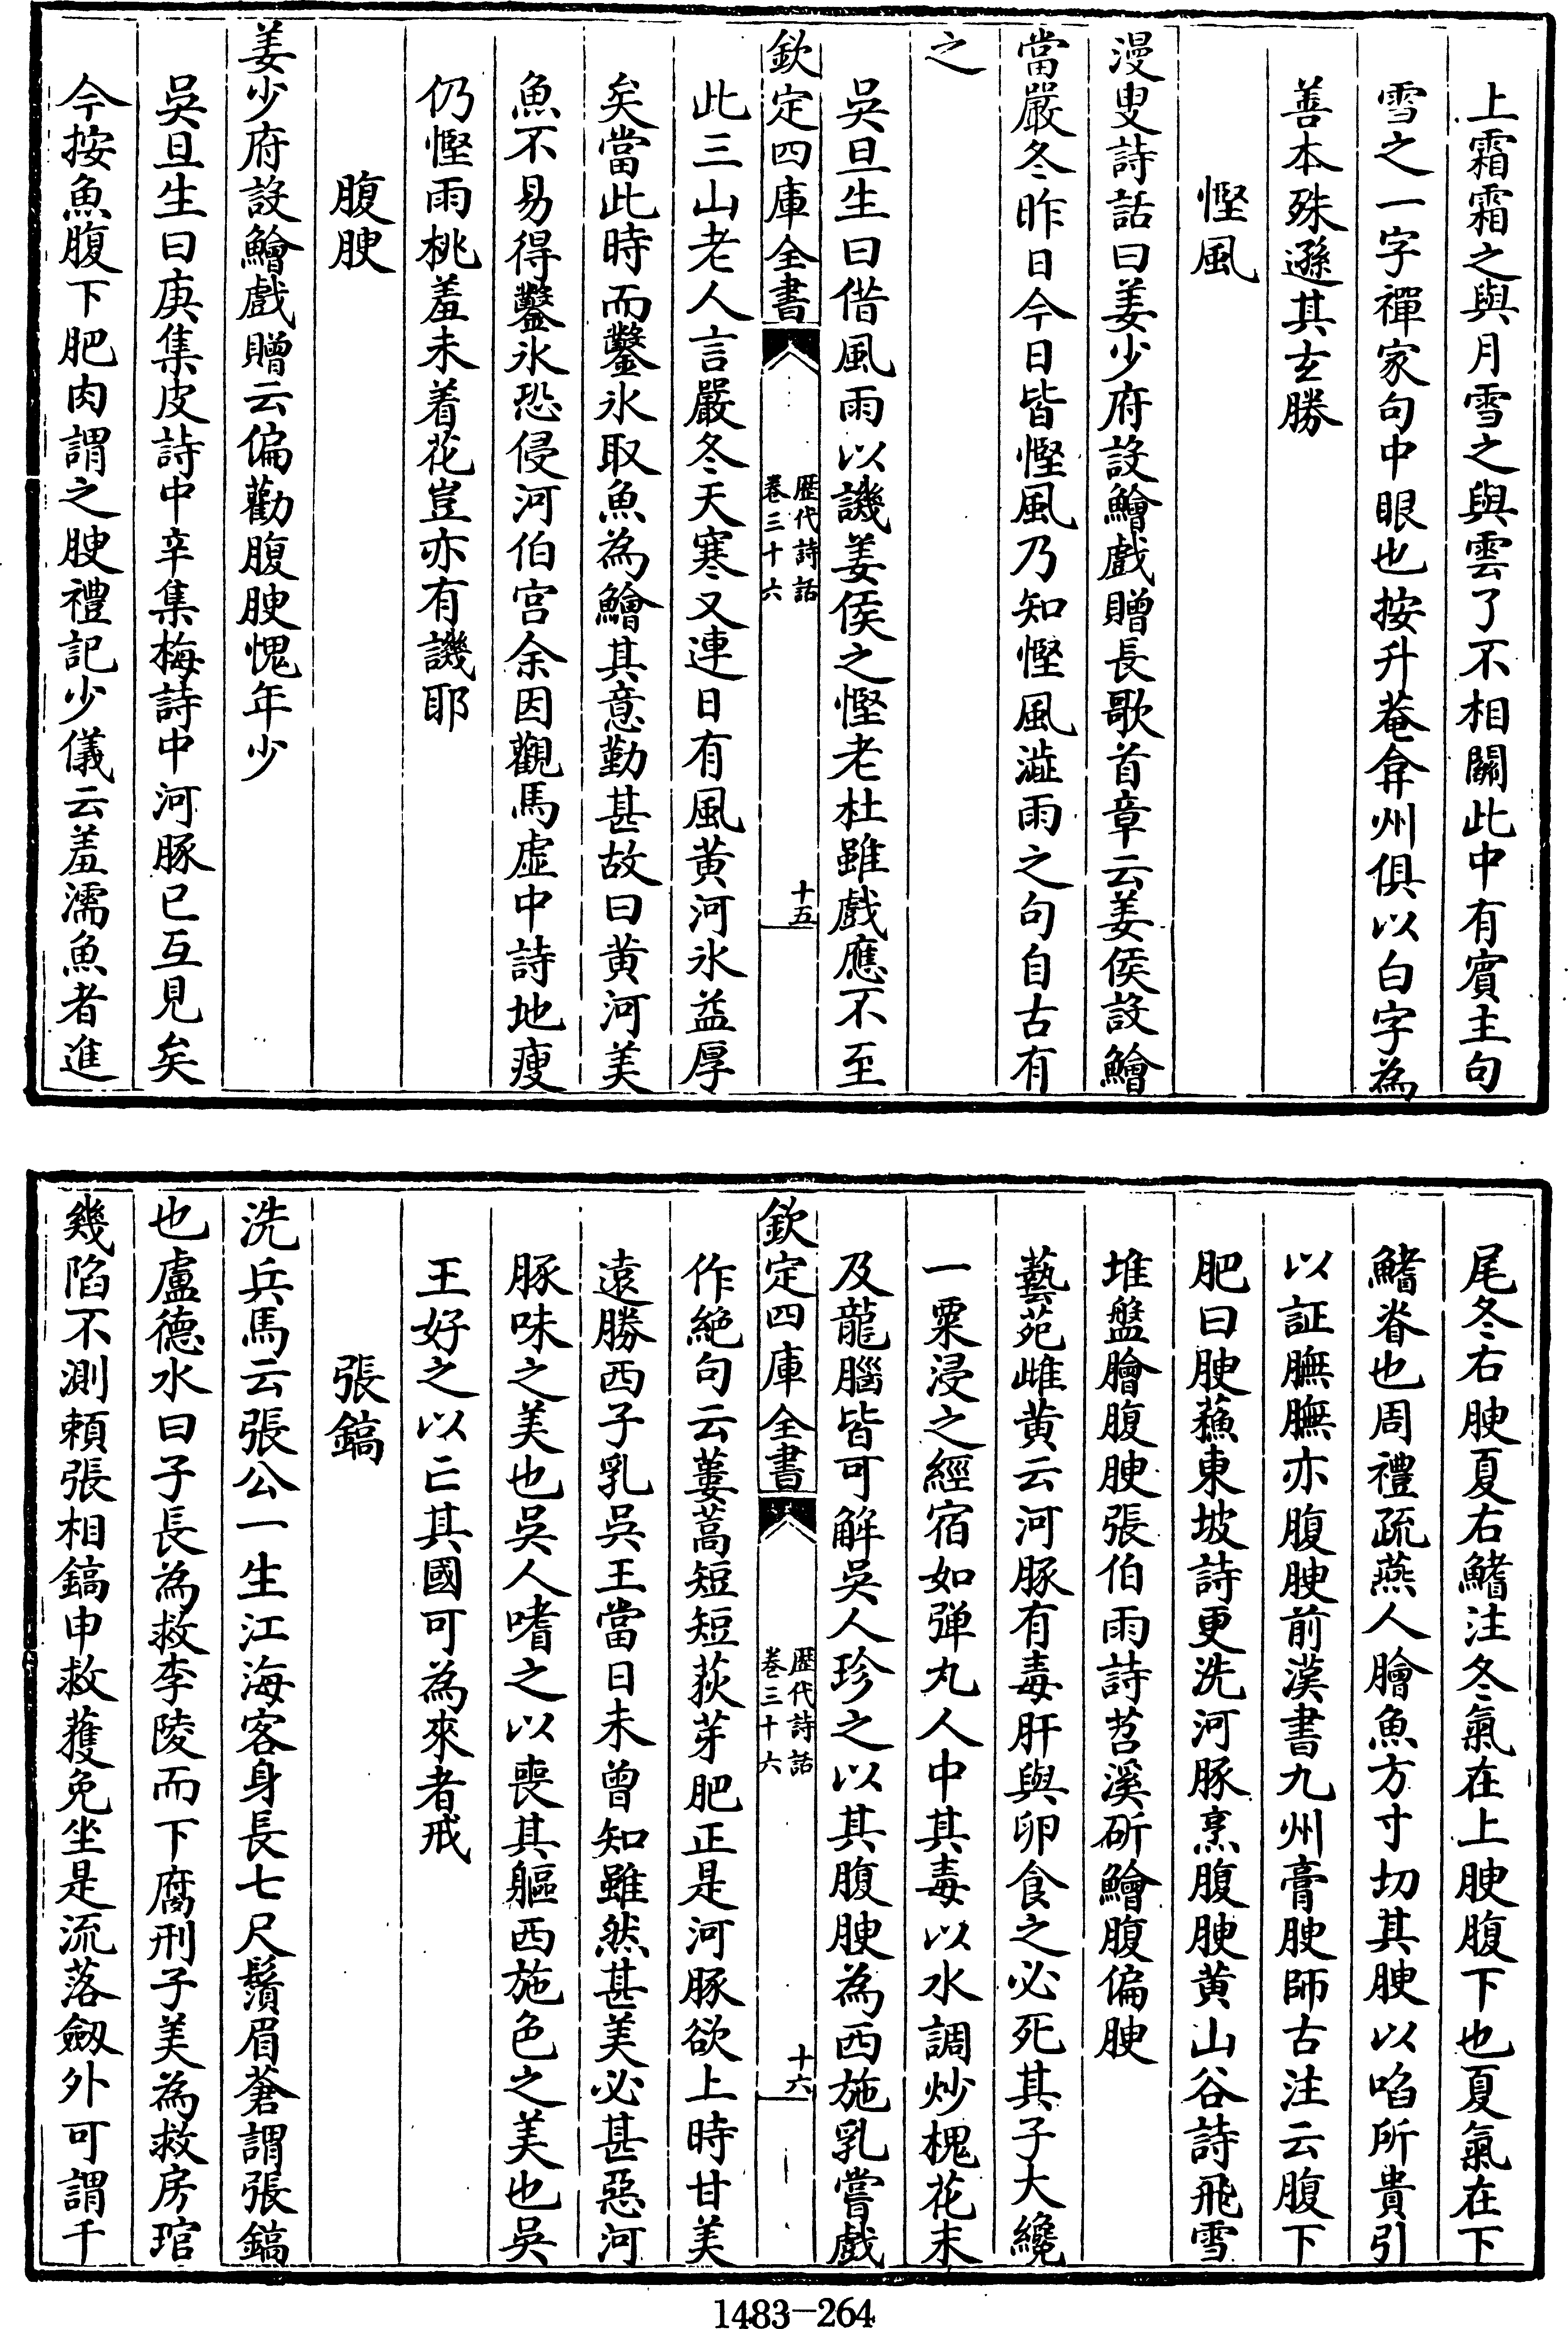 上霜霜之與月雪之與雲了不相關此中有賓主句
雪之一字禪家句中眼也按升菴弇州俱以白字為
善本殊遜其玄勝
慳風
漫叟詩話曰姜少府設鱠戲贈長歌首章云姜侯設鱠
當嚴冬昨日今日皆慳風乃知慳風澁雨之句自古有
之
吳旦生曰借風雨以譏姜侯之慳老杜雖戲應不至
欽定四庫全書
歴代詩話
卷三十六
十五
此三山老人言嚴冬天寒又連日有風黃河氷益厚
矣當此時而鑿氷取魚為鱠其意勤甚故曰黃河美
魚不易得鑿氷恐侵河伯宮余因觀馬虛中詩地瘦
仍慳雨桃羞未着花豈亦有譏耶
腹腴
姜少府設鱠戲贈云偏勸腹腴愧年少
吳旦生曰庚集皮詩中辛集梅詩中河豚已互見矣
今按魚腹下肥肉謂之腴禮記少儀云羞濡魚者進
尾冬右腴夏右鰭注冬氣在上腴腹下也夏氣在下
鰭脊也周禮疏燕人膾魚方寸切其腴以啗所貴引
以証膴膴亦腹腴前漢書九州膏腴師古注云腹下
肥曰腴蘓東坡詩更洗河豚烹腹腴黃山谷詩飛雪
堆盤膾腹腴張伯雨詩苕溪斫鱠腹偏腴
藝苑雌黃云河豚有毒肝與卵食之必死其子大纔
一粟浸之經宿如彈丸人中其毒以水調炒槐花末
及龍腦皆可解吳人珍之以其腹腴為西施乳嘗戲
欽定四庫全書
歴代詩話
卷三十六
十六
作絕句云蔞蒿短短荻芽肥正是河豚欲上時甘美
遠勝西子乳吳王當日未曾知雖然甚美必甚惡河
豚味之美也吳人嗜之以喪其軀西施色之美也吳
王好之以亡其國可為來者戒
張鎬
洗兵馬云張公一生江海客身長七尺鬚眉蒼謂張鎬
也盧德水曰子長為救李陵而下腐刑子美為救房琯
幾陷不測賴張相鎬申救獲免坐是流落劔外可謂千
1483-264